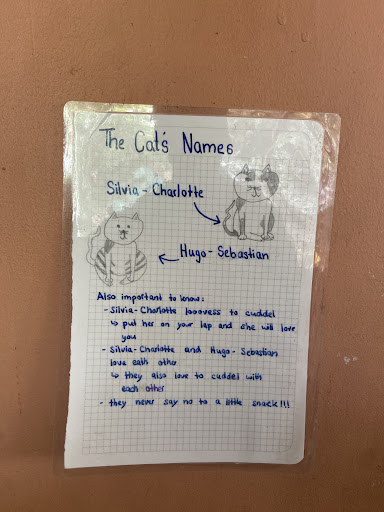 The Cat's Names
Silvia - Charlotte
Hugo - Sebastian
Also important to know:
- Silvia - Charlotte looovess to cuddel
↳ put her on your lap and she will love
you
- Silvia - Charlotte and Hugo - Sebastian
love eath othe
↳ they also love to cuddel with
each other
- they never say no to a little snack!!!